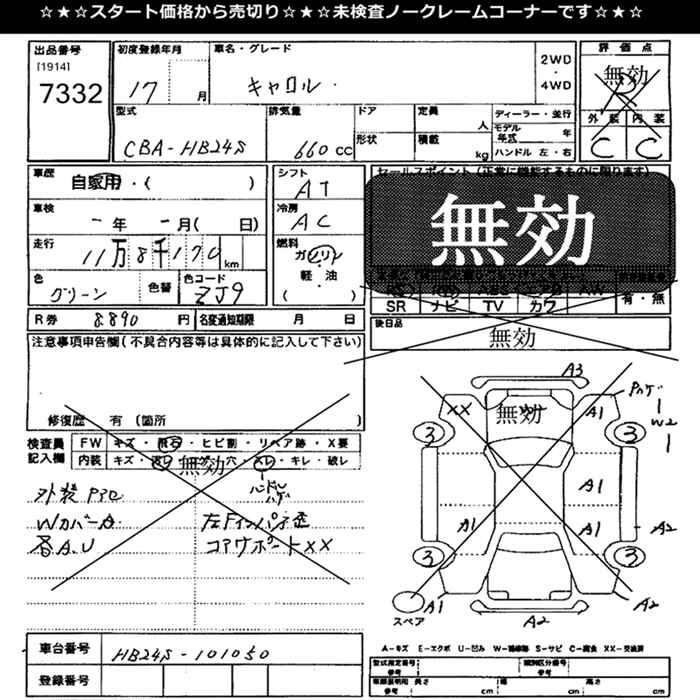 ☆★☆★スタート価格から売切り☆★☆★未検査ノークレームコーナーです☆★☆
出品番号
[1914]
7332
初度登録年月
17 月
車名・グレード
キャロル
2WD
・
4WD
評価点
無効
R
外装 内装
C C
型式
CBA-HB24S
排気量
660 cc
ドア
形状
定員
人
積載
kg
ディーラー・並行
モデル年式 年
ハンドル 左・右
車歴
自家用・( )
シフト
AT
セールスポイント (正常に機能するものに限ります)
無効
車検
年 月( 日)
冷房
AC
走行
11万8千170 km
燃料
ガソリン
軽・油
( )
色
グリーン
色替
色コード
ZJ9
SR ナビ TV カワ
有・無
R券 8.890 円
名変通知期限 月 日
後日品
無効
注意事項申告欄(不具合内容等は具体的に記入して下さい)
修復歴 有 (箇所 )
検査員
記入欄
FW キズ・飛石・ヒビ割・リペア跡・X要
内装 キズ・穴・スレ・キレ・破レ
無効
ハンドル
ハゲ
外装
Wカバー
各A.U
コアサポートXX
A3
XX
無効
A1
W2
3
3
A1
A1
A1
A2
3
3
スペア
A1
A2
A2
A-キズ E-エクボ U-凹み W-補修跡 S-サビ C-腐食 XX-交換済
車台番号
HB24S-101050
登録番号
型式指定番号
参考
類別区分番号
参考
長さ
cm
幅
cm
高さ
cm